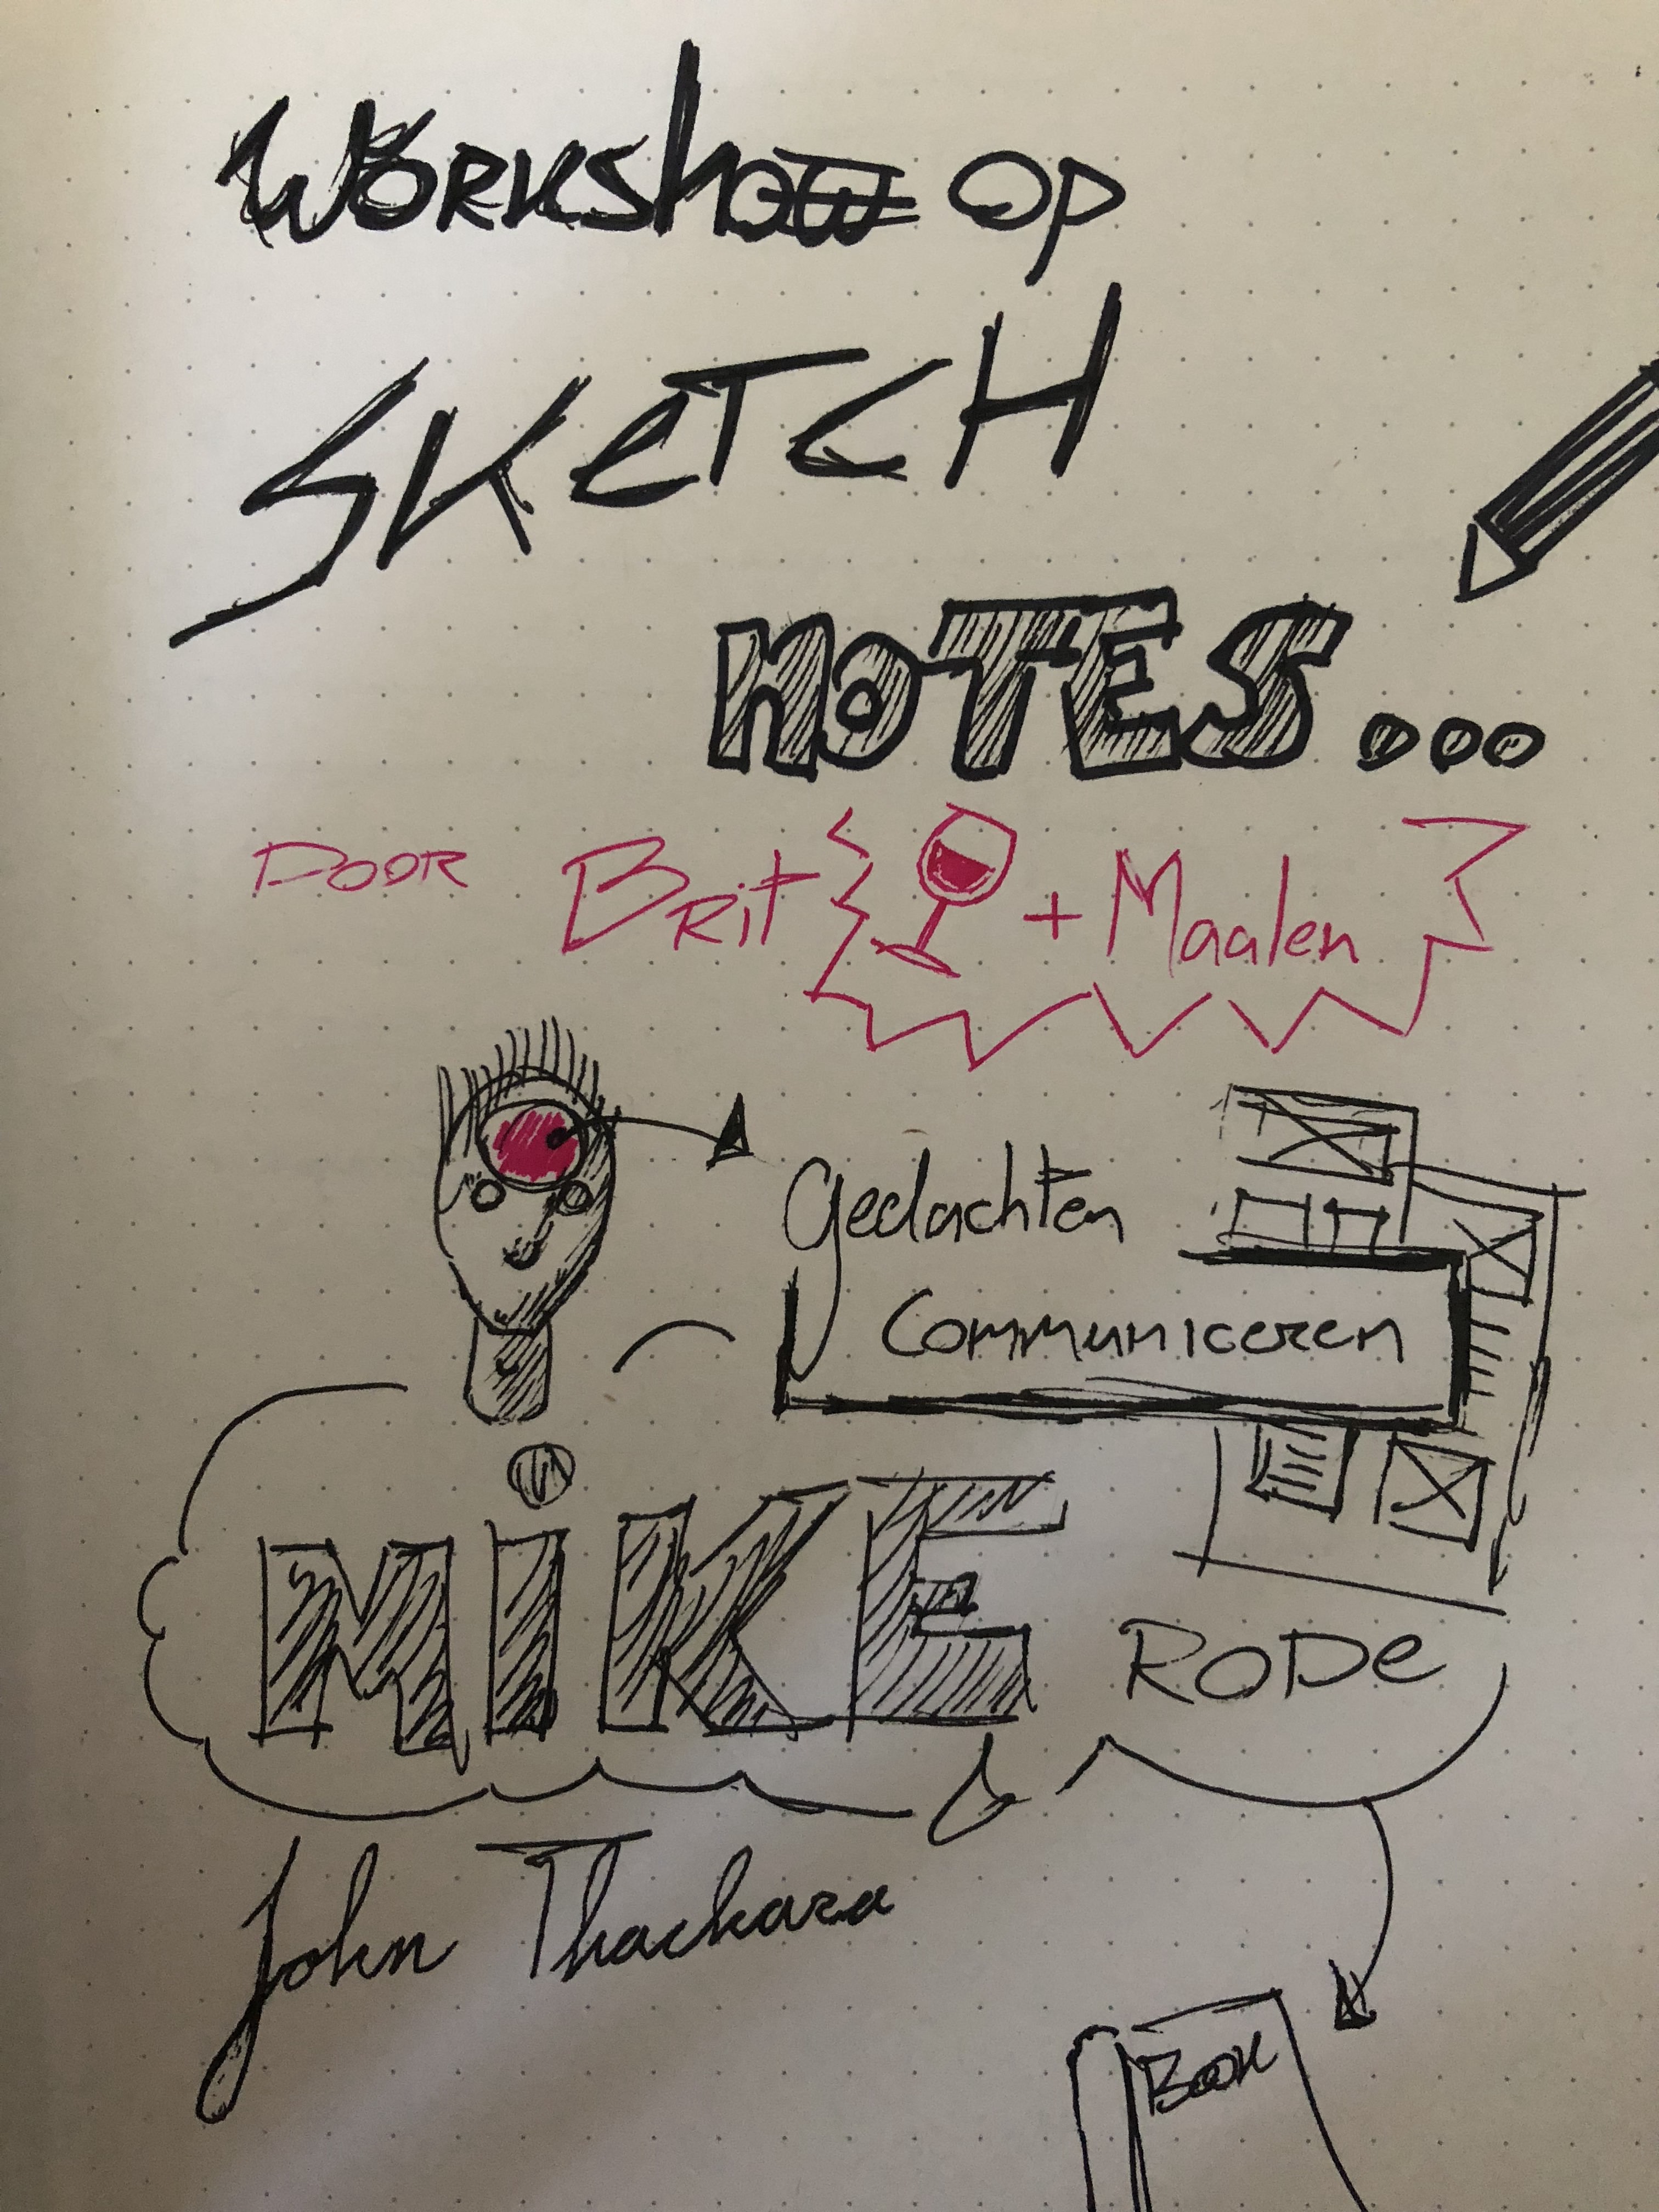 Workshow op
SKeTCH
NOTES...
DOOR Brit + Maalen
Gedachten
Communiceren
MiKE RODe
John Thackara
BOOK